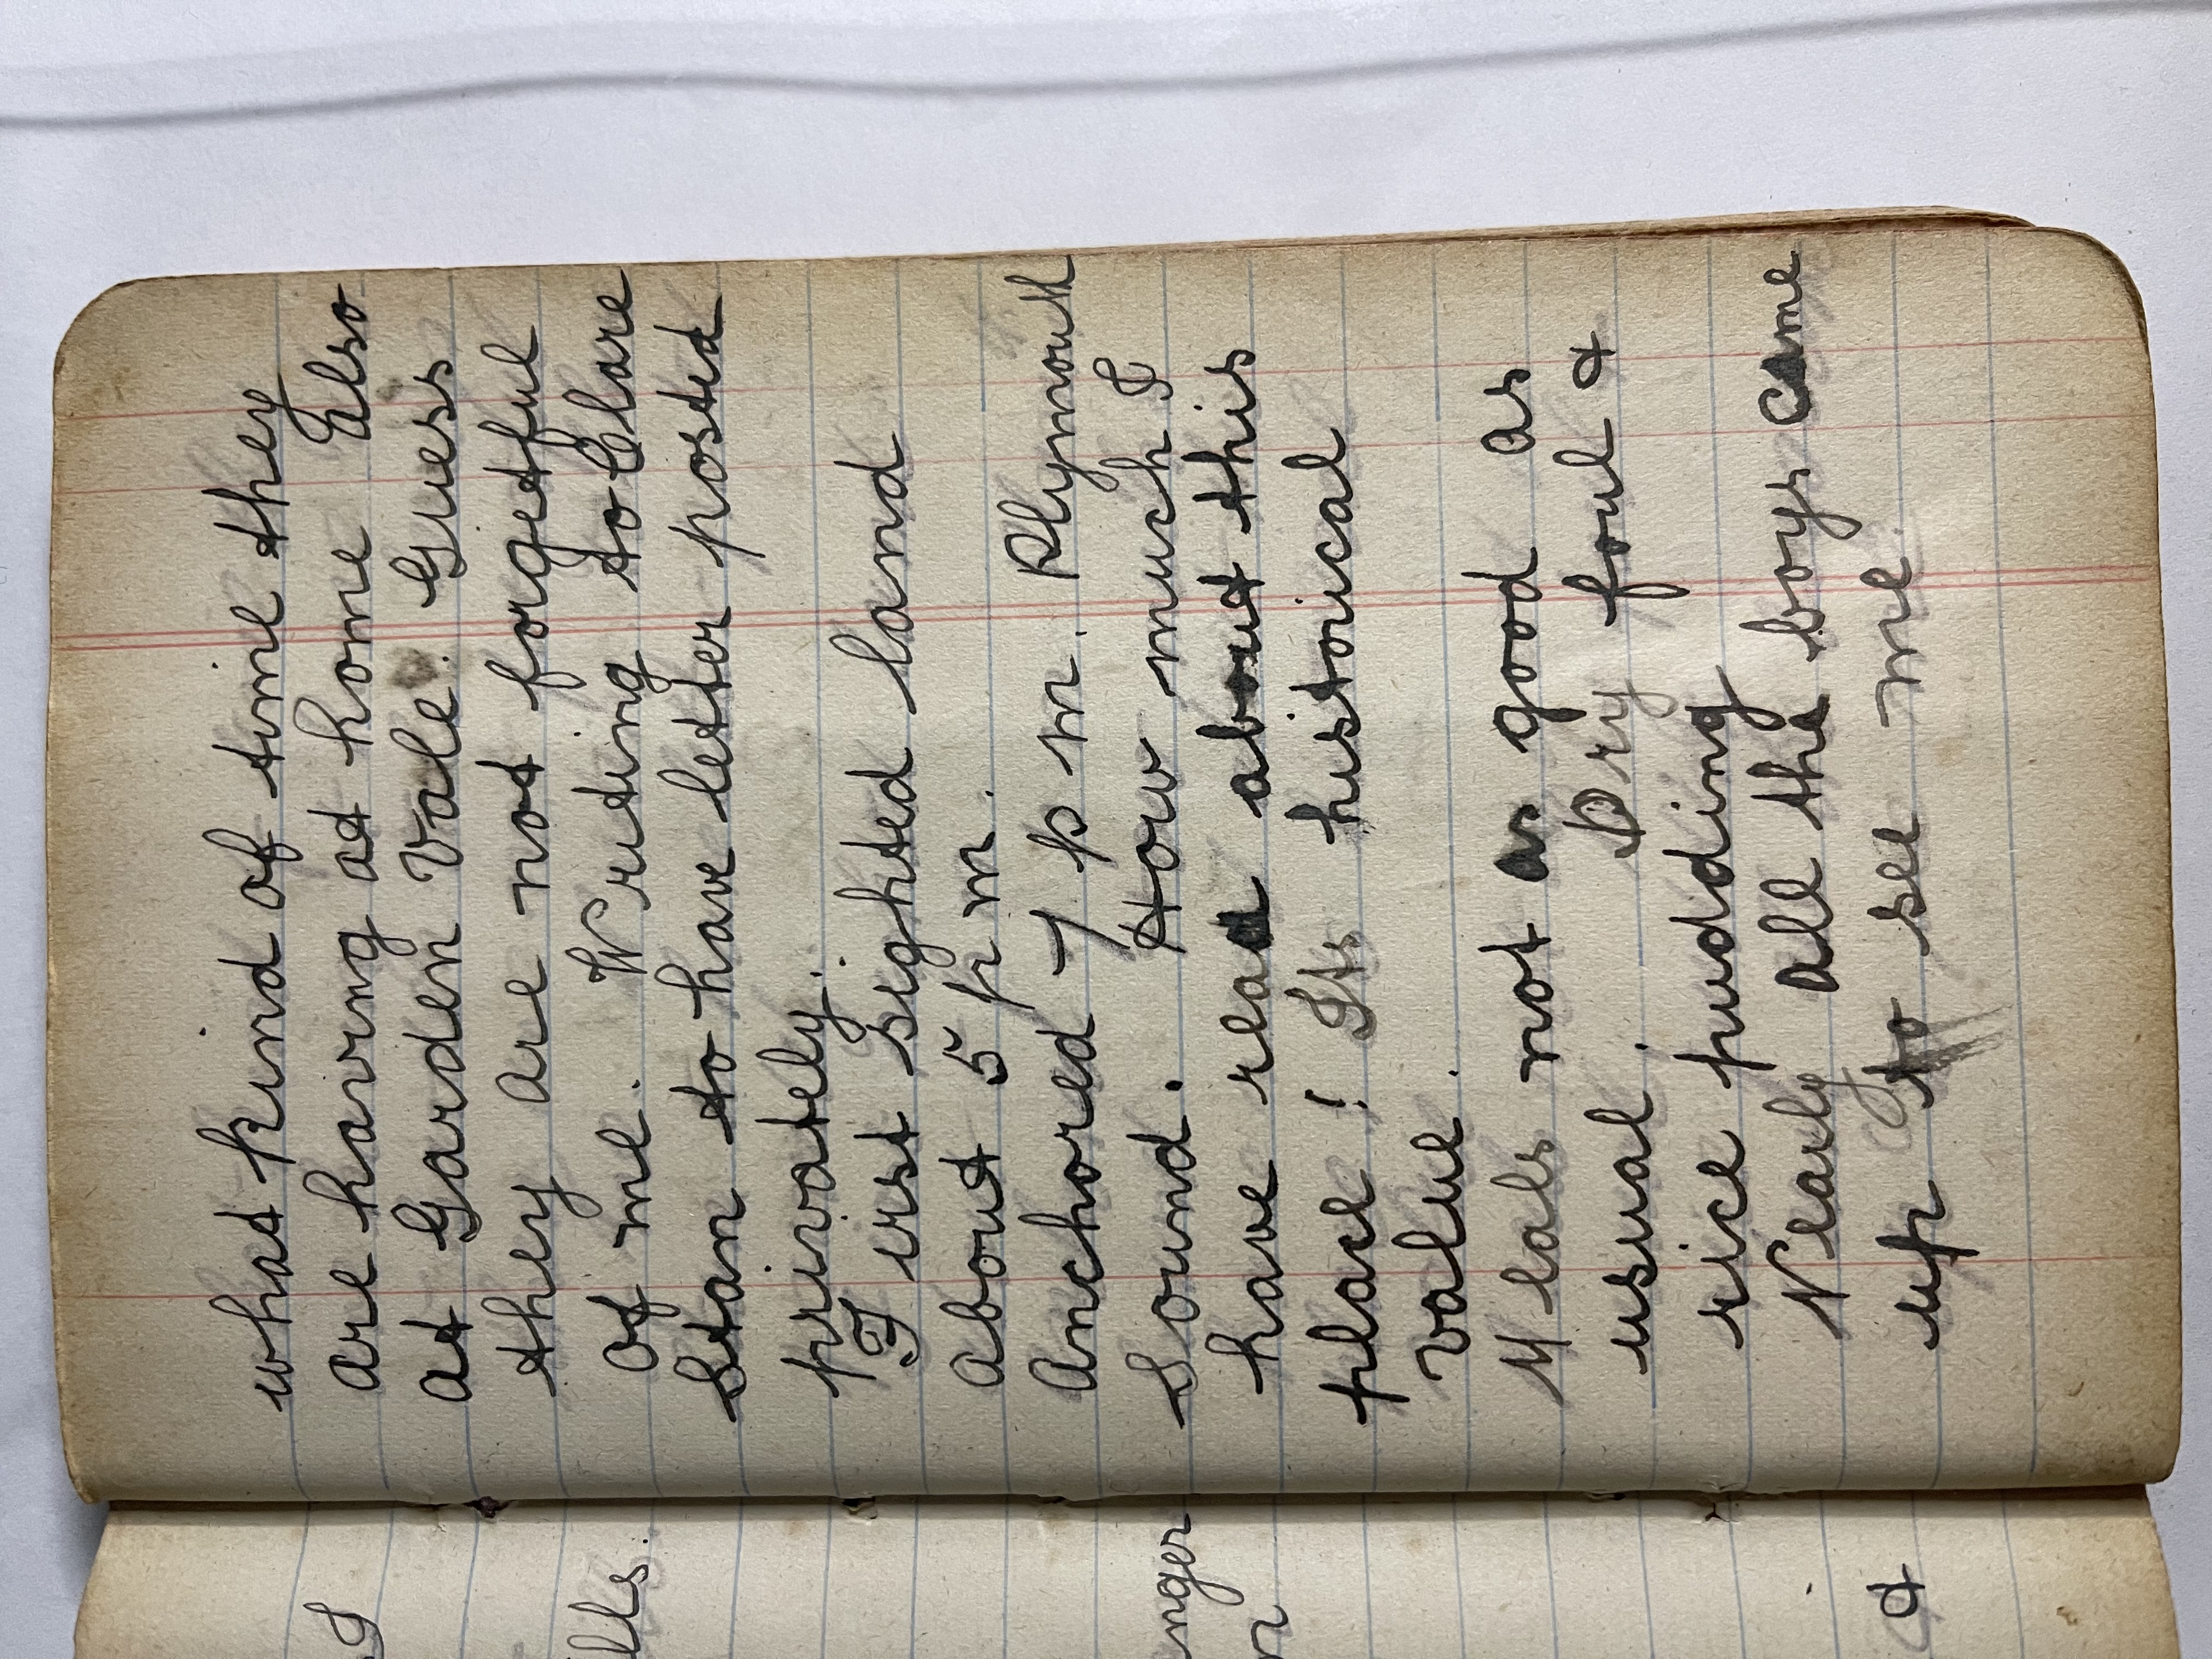 what kind of time they
are having at home Also
at Garden Vale. Guess
they are not forgetful
of me. Writing to Clare
Stan to have letter posted
privately.
First sighted land
about 5 p m.
Anchored 7 p m. Plymouth
Sound. How much I
have read about this
place! Its historical
value.
Meals not as good as
usual. Dry foul &
rice pudding
Nearly all the boys came
up to see me.
I
lls.
nger
n
&